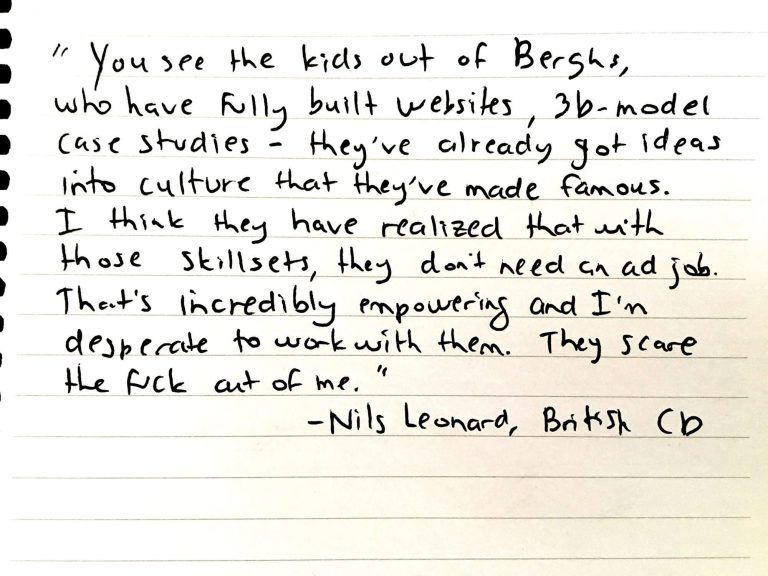 "You see the kids out of Berghs,
who have fully built websites, 3D-model
case studies - they've already got ideas
into culture that they've made famous.
I think they have realized that with
those skillsets, they don't need an ad job.
That's incredibly empowering and I'm
desperate to work with them. They scare
the fuck out of me."
-Nils Leonard, British CD